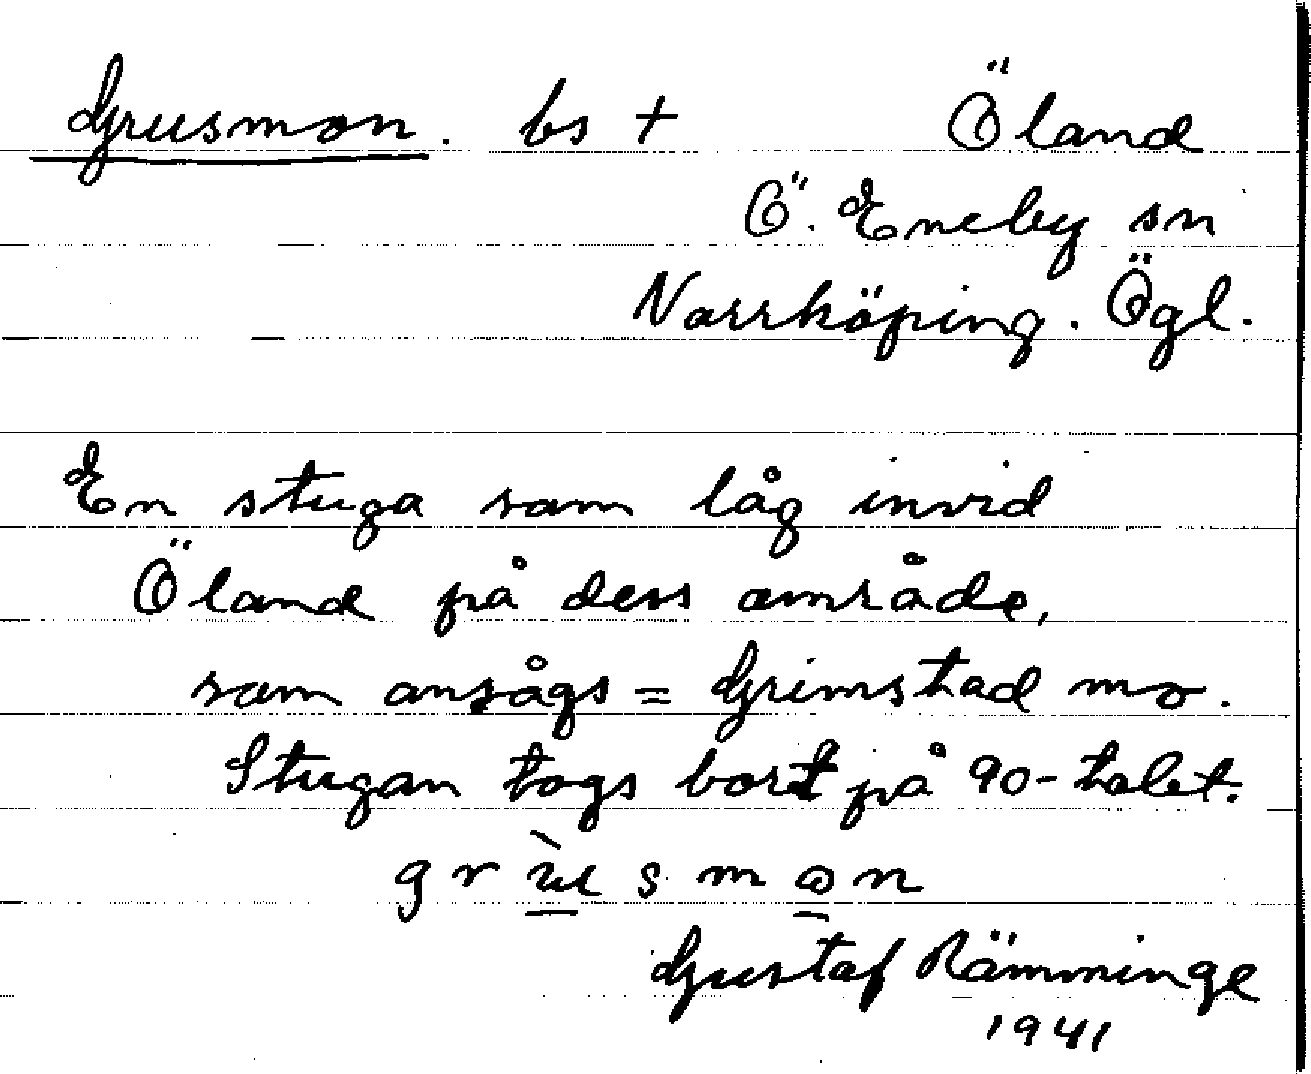 Grusmon. bs + Öland
Ö. Eneby sn
Norrköping. Ögl.
En stuga som låg invid
Öland på dess område,
som ansågs = Grimstad mo.
Stugan togs bort på 90-talet.
grùsmon
Gustaf Rämminge
1941